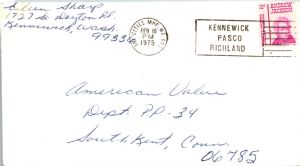 Sharp
1727 So. Dayton Pl.
Kennewick, Wash.
99336
TRI CITIES
FEB 10
PM
1975
KENNEWICK
PASCO
RICHLAND
10¢ ANDREW
JACKSON
American Value
Dept. PP-34
South Kent, Conn.
06785